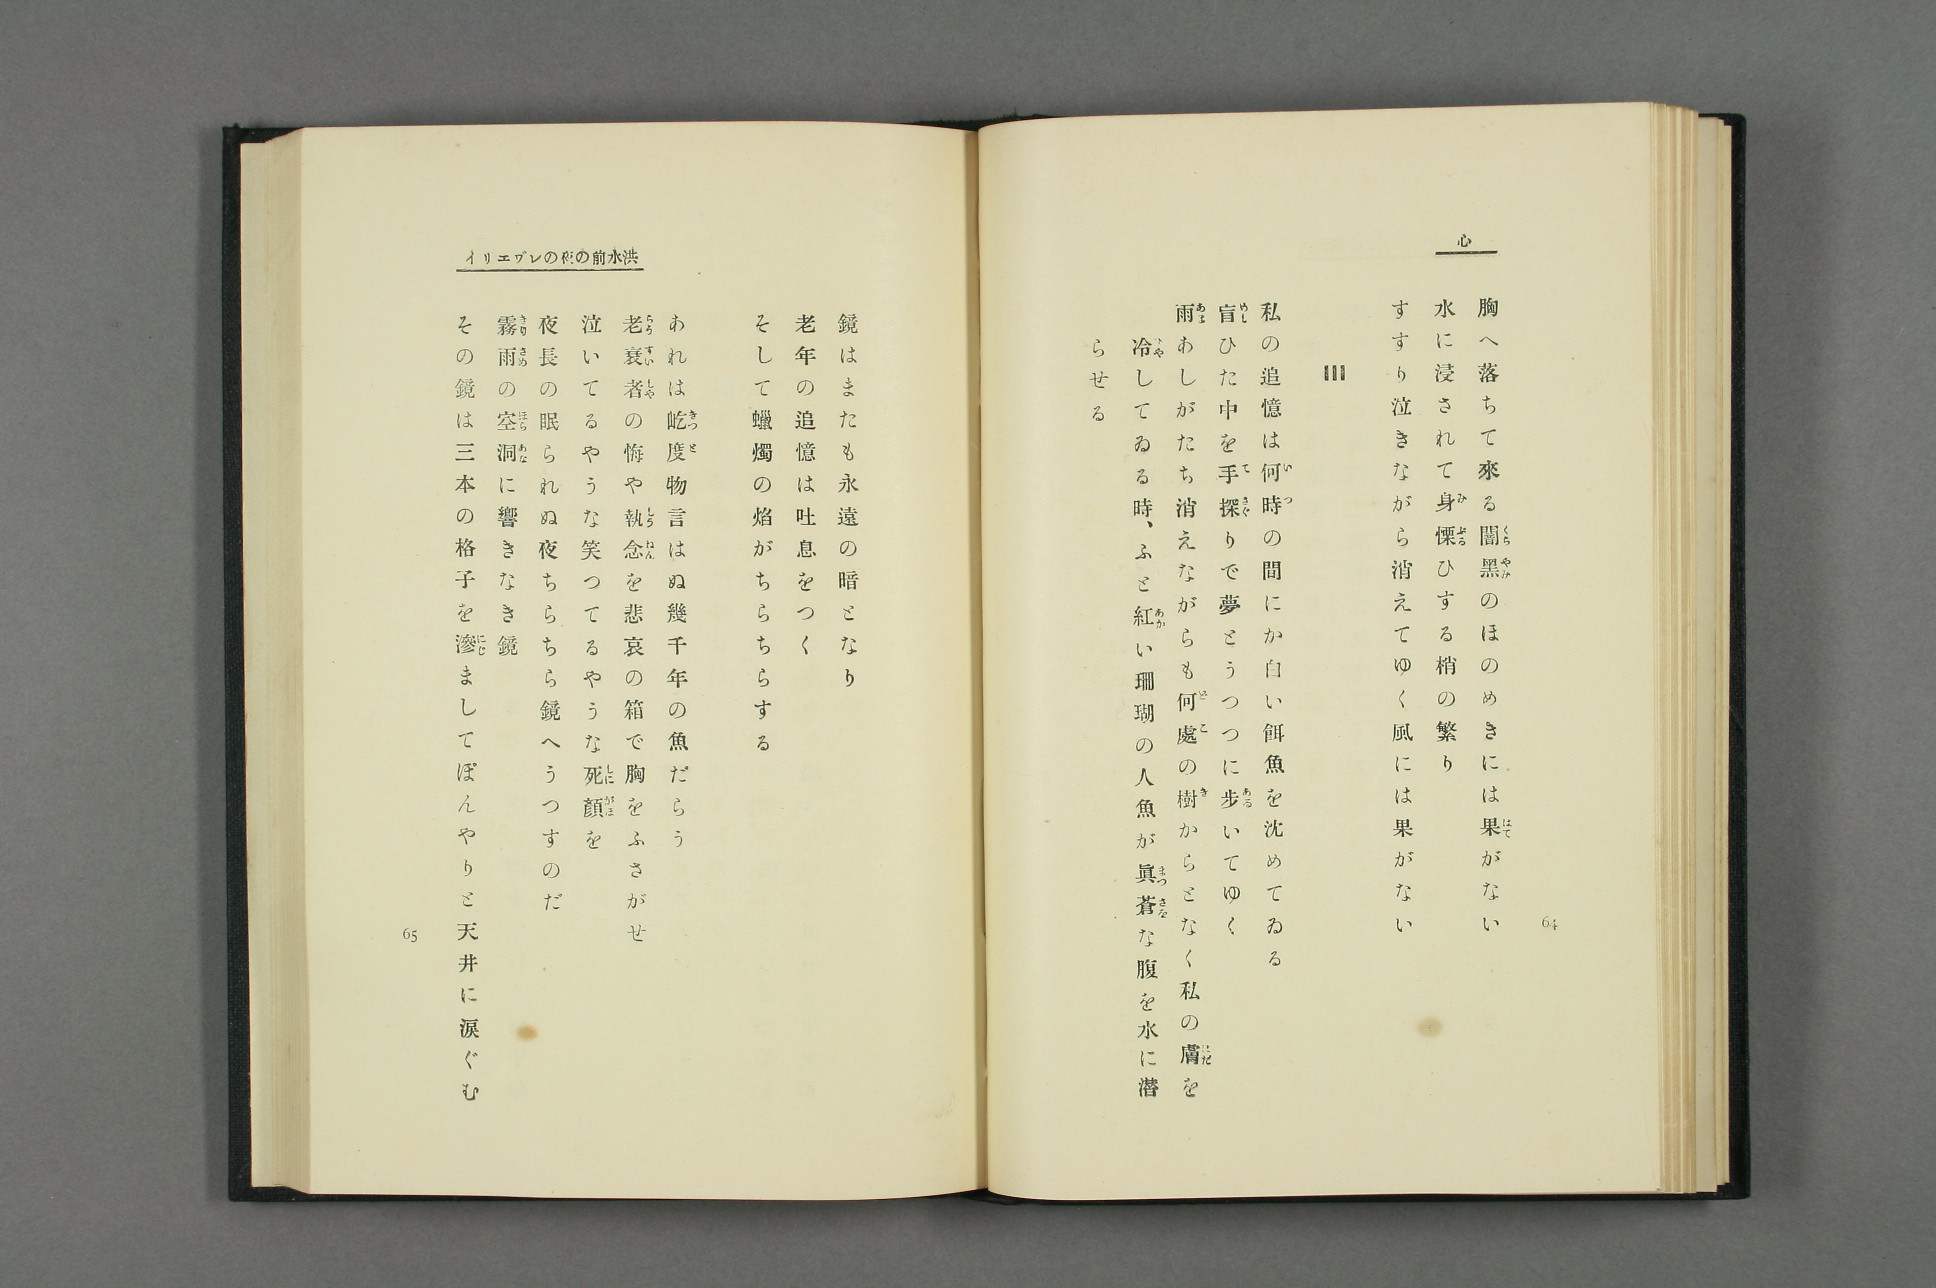 心
胸へ落ちて來る闇黑のほのめきには果がない
水に浸されて身慄ひする梢の繁り
すすり泣きながら消えてゆく風には果がない
III
私の追憶は何時の間にか白い餌魚を沈めてゐる
盲ひた中を手探りで夢とうつつに步いてゆく
雨あしがたち消えながらも何處の樹からとなく私の膚を
冷してゐる時、ふと紅い珊瑚の人魚が眞蒼な腹を水に潛
らせる
64
洪水前の夜のレヴエリイ
鏡はまたも永遠の暗となり
老年の追憶は吐息をつく
そして蠟燭の焰がちらちらする
あれは屹度物言はぬ幾千年の魚だらう
老衰者の悔や執念を悲哀の箱で胸をふさがせ
泣いてるやうな笑つてるやうな死顏を
夜長の眠られぬ夜ちらちら鏡へうつすのだ
霧雨の空洞に響きなき鏡
その鏡は三本の格子を滲ましてぼんやりと天井に淚ぐむ
65